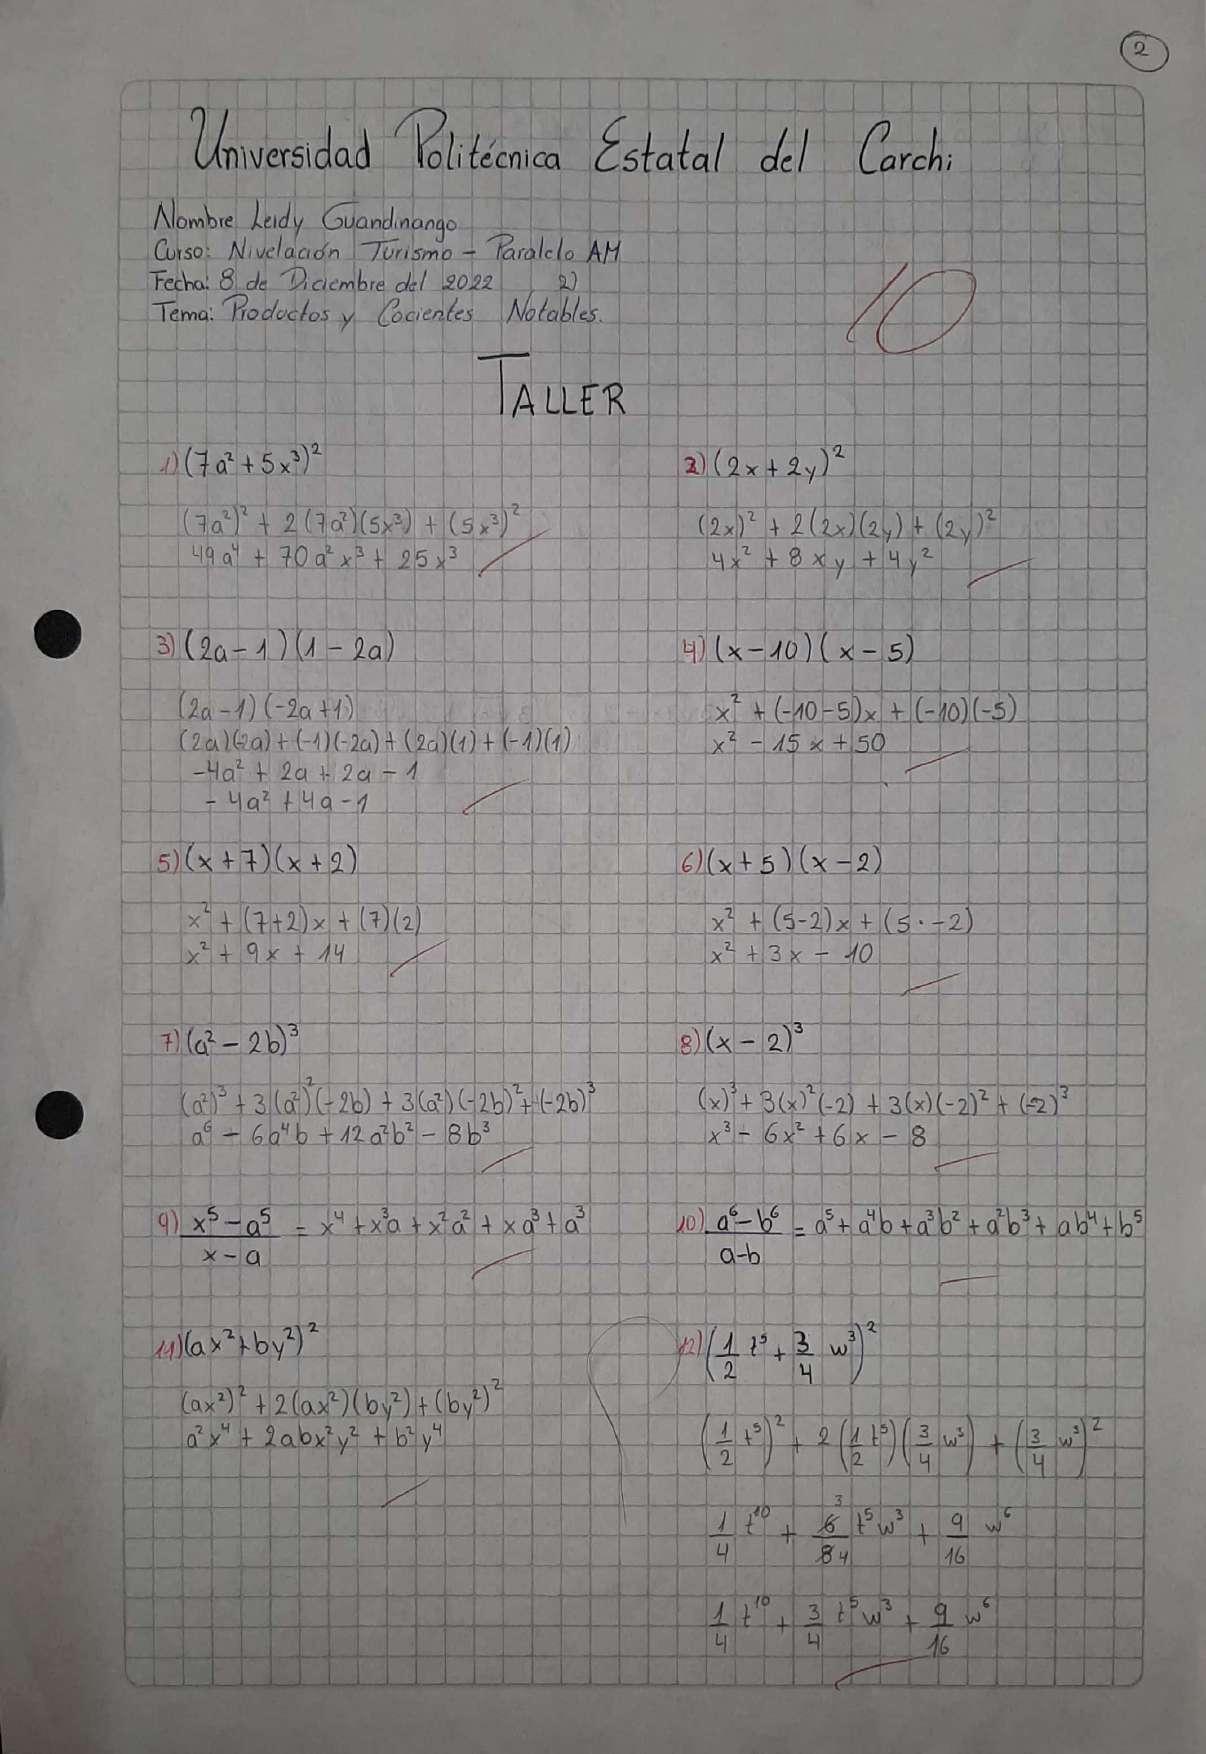 2
Universidad Politécnica Estatal del Carchi
Nombre Leidy Guandinango
Curso: Nivelación Turismo - Paralelo AM
Fecha: 8 de Diciembre del 2022 2)
Tema: Productos y Cocientes Notables.
10
TALLER
1) (7a² + 5x³)²
(7a²)² + 2(7a²)(5x³) + (5x³)²
49a⁴ + 70a²x³ + 25x³
2) (2x + 2y)²
(2x)² + 2(2x)(2y) + (2y)²
4x² + 8xy + 4y²
3) (2a - 1)(1 - 2a)
(2a - 1)(-2a + 1)
(2a)(-2a) + (-1)(-2a) + (2a)(1) + (-1)(1)
-4a² + 2a + 2a - 1
-4a² + 4a - 1
4) (x - 10)(x - 5)
x² + (-10-5)x + (-10)(-5)
x² - 15x + 50
5) (x + 7)(x + 2)
x² + (7+2)x + (7)(2)
x² + 9x + 14
6) (x + 5)(x - 2)
x² + (5-2)x + (5 · -2)
x² + 3x - 10
7) (a² - 2b)³
(a²)³ + 3(a²)²(-2b) + 3(a²)(-2b)² + (-2b)³
a⁶ - 6a⁴b + 12a²b² - 8b³
8) (x - 2)³
(x)³ + 3(x)²(-2) + 3(x)(-2)² + (-2)³
x³ - 6x² + 6x - 8
9) x⁵ - a⁵ / x - a = x⁴ + x³a + x²a² + xa³ + a³
10) a⁶ - b⁶ / a - b = a⁵ + a⁴b + a³b² + a²b³ + ab⁴ + b⁵
11) (ax² + by²)²
(ax²)² + 2(ax²)(by²) + (by²)²
a²x⁴ + 2abx²y² + b²y⁴
12) (1/2 t⁵ + 3/4 w³)²
(1/2 t⁵)² + 2(1/2 t⁵)(3/4 w³) + (3/4 w³)²
1/4 t¹⁰ + 6/8 3/4 t⁵w³ + 9/16 w⁶
1/4 t¹⁰ + 3/4 t⁵w³ + 9/16 w⁶